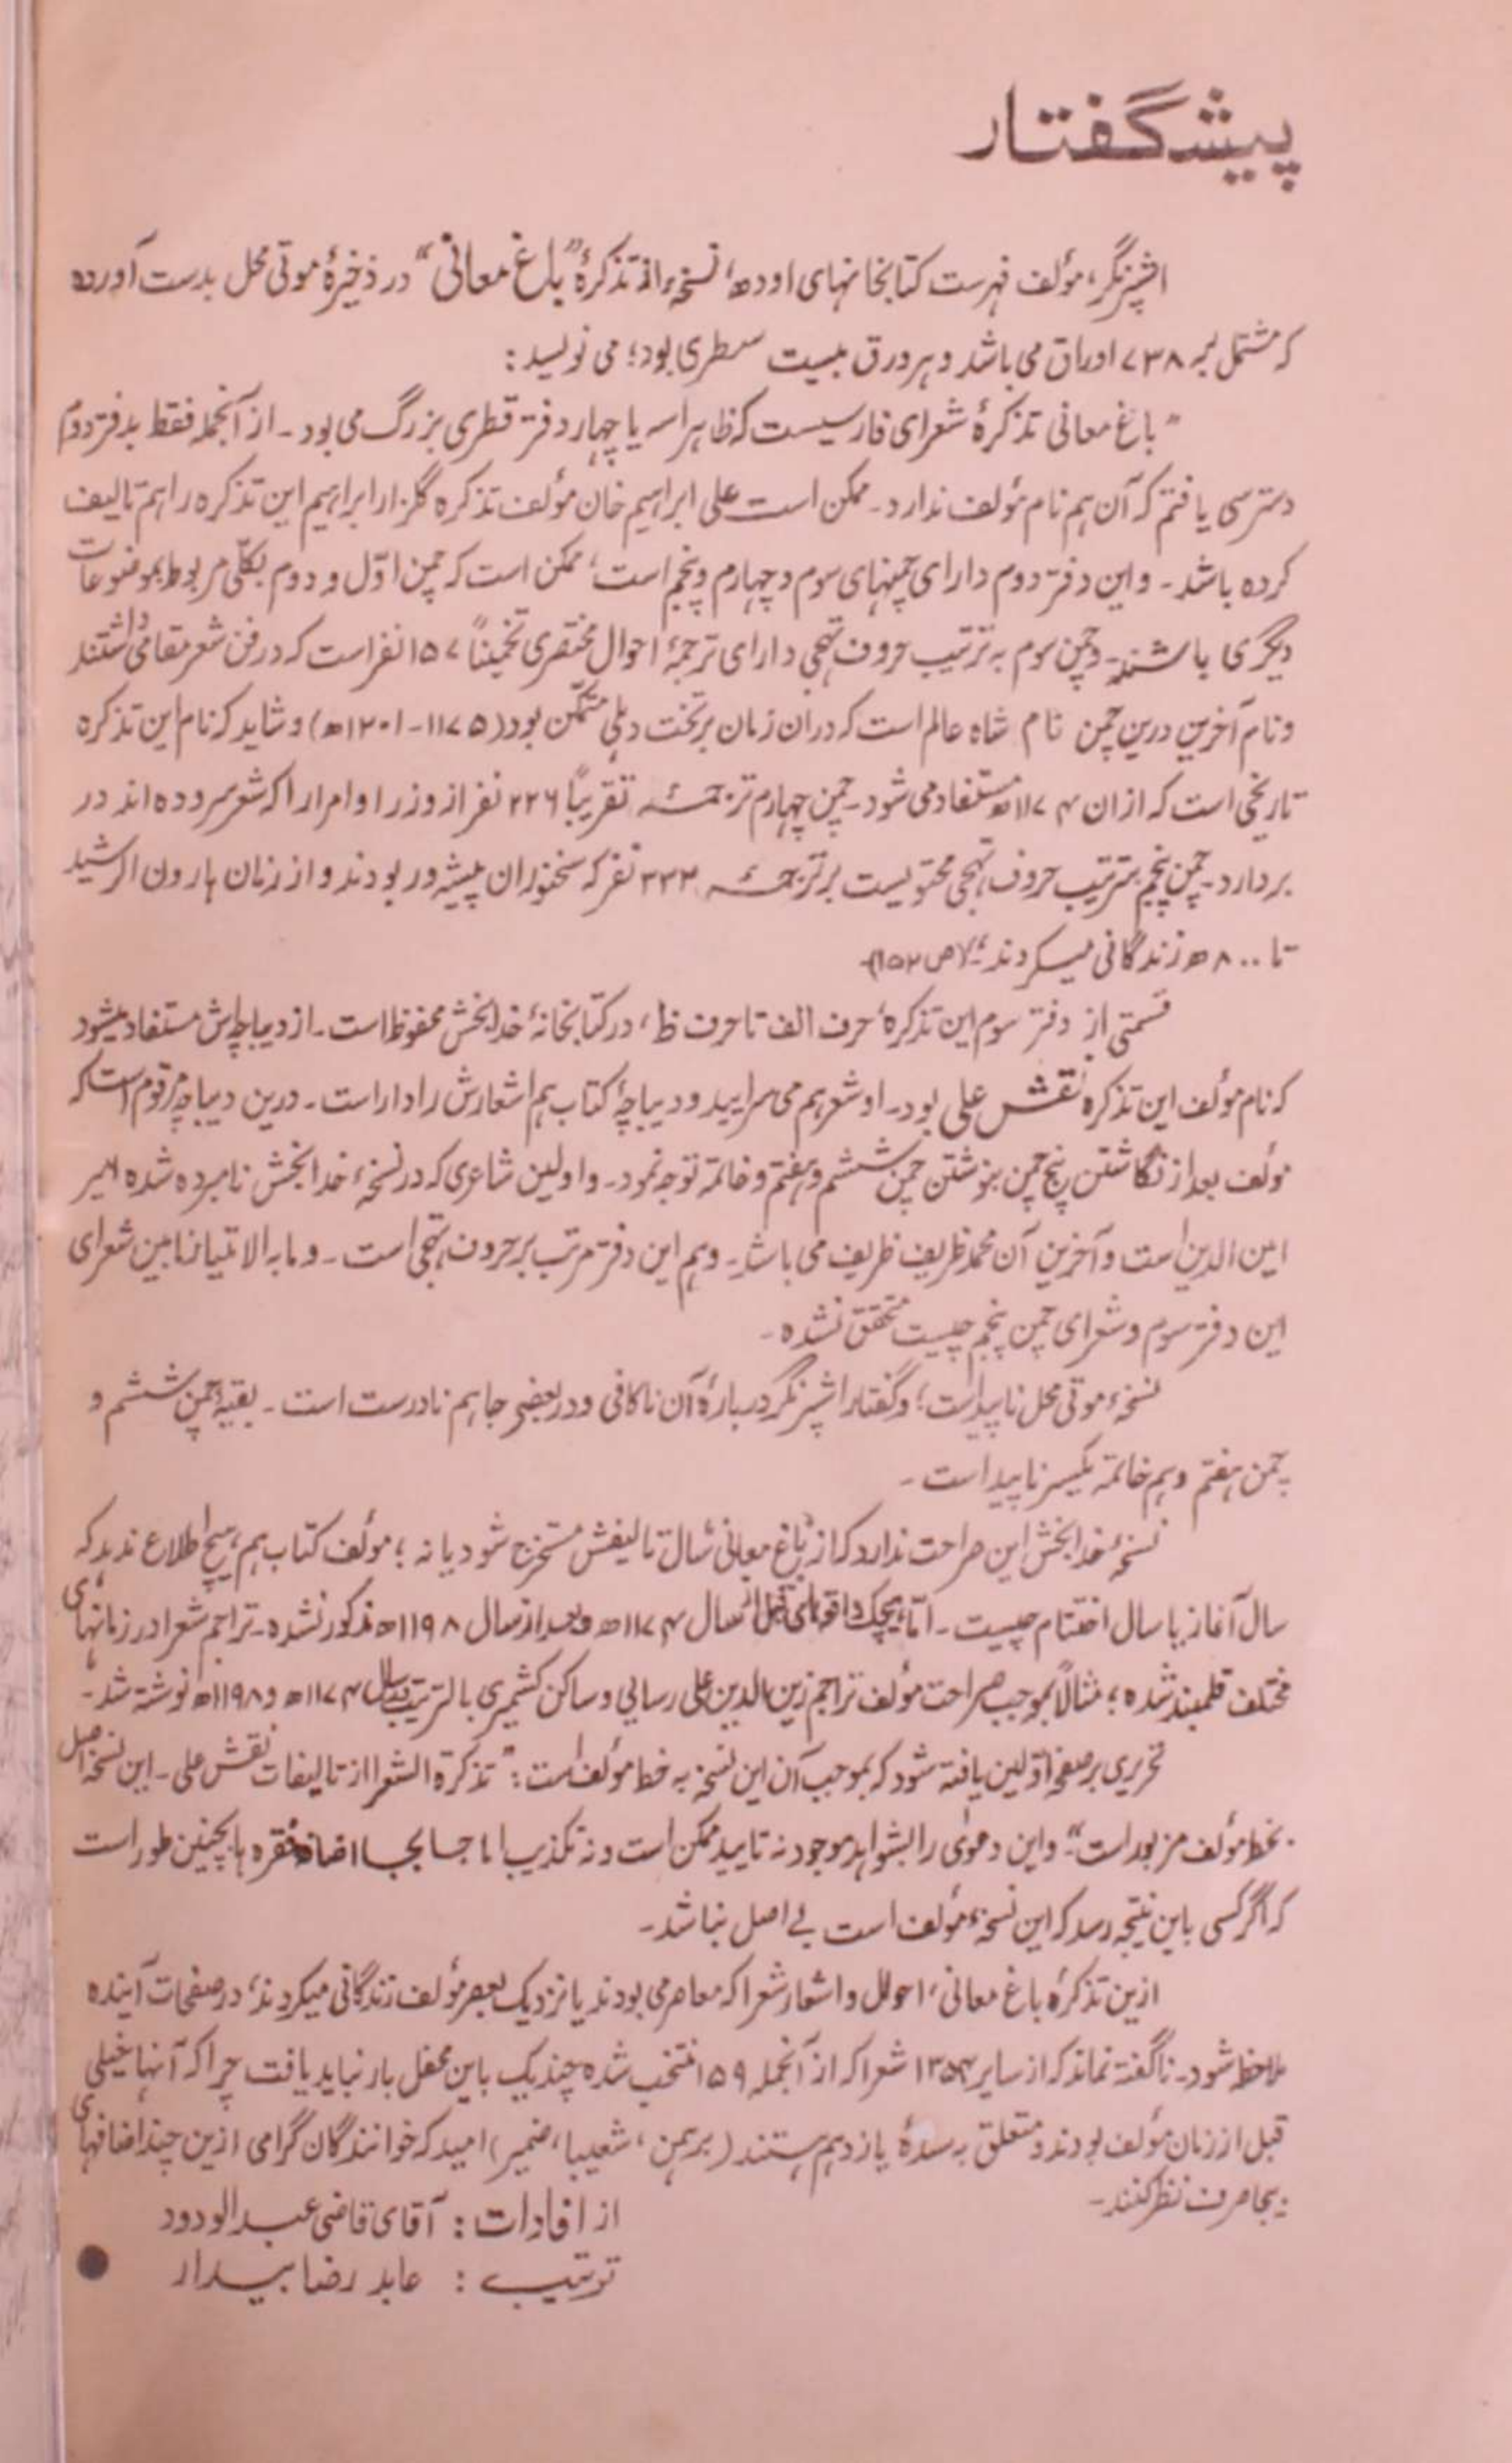 پیشگفتار
اشپرنگر، مؤلف فہرست کتابخانہای اودھ، نسخہء از تذکرۂ "باغ معانی" در ذخیرۂ موتی محل بدست آوردہ
کہ مشتمل بہ ۷۳۸ اوراق می باشد و ہر ورق بیست سطری بود؛ می نویسد :
" باغ معانی تذکرۂ شعرای فارسیست کہ ظاہرا سہ یا چہار دفتر قطری بزرگ می بود ۔ از آنجملہ فقط بدفتر دوم
دسترسی یافتم کہ آن ہم نام مؤلف ندارد ۔ ممکن است علی ابراہیم خان مؤلف تذکرہ گلزار ابراہیم این تذکرہ را ہم تالیف
کردہ باشد ۔ و این دفتر دوم دارای چمنہای سوم و چہارم و پنجم است، ممکن است کہ چمن اوّل و دوم بکلّی مربوط بموضوعات
دیگری باشند ۔ و چمن سوم بہ ترتیب حروف تہجی دارای ترجمۂ احوال مختصری تخمیناً ۱۵۷ نفر است کہ در فن شعر مقامی داشتند
و نام آخرین درین چمن نام شاہ عالم است کہ دران زمان بر تخت دہلی متمکّن بود (۱۱۷۵ - ۱۲۰۱ھ) و شاید کہ نام این تذکرہ
تاریخی است کہ ازان ۱۱۷۴ھ مستفاد می شود ۔ چمن چہارم ترجمۂ تقریباً ۲۲۶ نفر از وزرا و امرا را کہ شعر سرودہ اند در
بردارد ۔ چمن پنجم بترتیب حروف تہجی محتویست بر ترجمۂ ۳۳۳ نفر کہ سخنوران پیشہ ور بودند و از زمان ہارون الرشید
تا ۸۰۰ھ زندگانی میکردند؛" (ص ۱۵۲)
قسمتی از دفتر سوم این تذکرہ، حرف الف تا حرف ظ، در کتابخانۂ خدابخش محفوظ است ۔ از دیباچہ اش مستفاد میشود
کہ نام مؤلف این تذکرہ نقش علی بود ۔ او شعر ہم می سرایید و دیباچۂ کتاب ہم اشعارش را داراست ۔ درین دیباچہ مرقوم است کہ
مؤلف بعد از نگاشتن پنج چمن بنوشتن چمن ششم و ہفتم و خاتمہ توجہ نمود ۔ و اولین شاعری کہ در نسخہء خدابخش نامبردہ شدہ امیر
امین الدین است و آخرین آن محمد ظریف ظریف می باشد ۔ و ہم این دفتر مرتب بر حروف تہجی است ۔ و ما بہ الامتیاز مابین شعرای
این دفتر سوم و شعرای چمن پنجم چیست محقق نشدہ ۔
نسخہء موتی محل ناپیداست؛ و گفتار اشپرنگر دربارۂ آن ناکافی و در بعضی جا ہم نادرست است ۔ بقیہ چمن ششم و
چمن ہفتم و ہم خاتمہ یکسر ناپید است ۔
نسخۂ خدابخش این صراحت ندارد کہ از "باغ معانی" سال تالیفش مستخرج شود یا نہ؛ مؤلف کتاب ہم ہیچ اطلاع ندہد کہ
سال آغاز یا سال اختتام چیست ۔ امّا ہیچیک واقعہای قبل از سال ۱۱۷۴ھ و بعد از سال ۱۱۹۸ھ مذکور نشدہ ۔ تراجم شعرا در زمانہای
مختلف قلمبند شدہ؛ مثالاً بموجب صراحت مؤلف تراجم زین الدین علی رسایی و ساکن کشمیری بالترتیب بسال ۱۱۷۴ھ و ۱۱۹۸ھ نوشتہ شد ۔
تحریری بر صفحہ اوّلین یافتہ شود کہ بموجب آن این نسخہ بہ خط مؤلف است : " تذکرۃ الشعرا از تالیفات نقش علی ۔ این نسخہ اصل
بخط مؤلف مزبور است" ۔ و این دعوٰی را بشواہد موجود نہ تایید ممکن است و نہ تکذیب اما جا بجا اضافہ فقرہ ہا بچنین طور است
کہ اگر کسی باین نتیجہ رسد کہ این نسخہء مؤلف است بے اصل نباشد ۔
ازین تذکرۂ باغ معانی، احوال و اشعار شعرا کہ معاصر می بودند یا نزدیک بعصر مؤلف زندگانی میکردند، در صفحات آیندہ
ملاحظہ شود ۔ ناگفتہ نماند کہ از سایر ۱۳۵۴ شعرا کہ از آنجملہ ۱۵۹ منتخب شدہ چند یک باین محفل بار نباید یافت چرا کہ آنہا خیلی
قبل از زمان مؤلف بودند و متعلق بہ سدۂ یازدہم ہستند (برہمن، شعیبا، ضمیر) امید کہ خوانندگان گرامی ازین چند اضافہای
بیجا صرف نظر کنند ۔
از افادات : آقای قاضی عبدالودود
ترتیب : عابد رضا بیدار